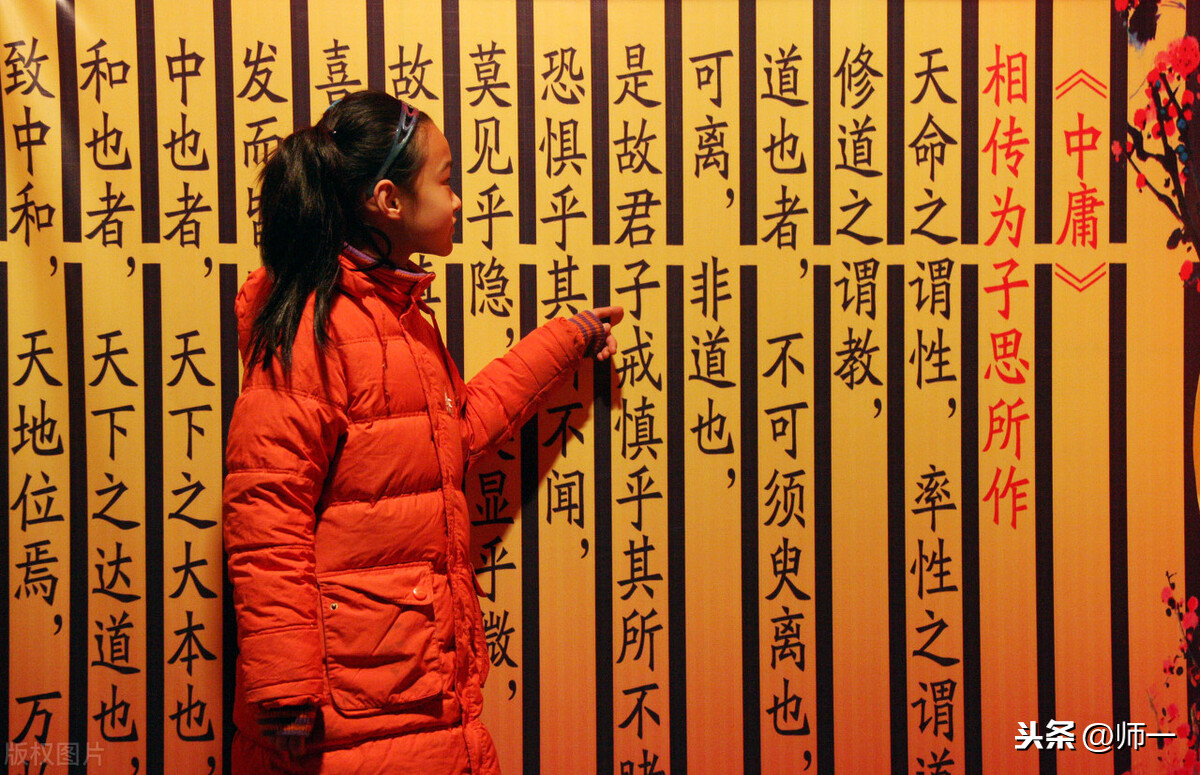 《中庸》
相传为子思所作
天命之谓性，率性之谓道
修道之谓教，
道也者，不可须臾离也，
可离，非道也，
是故君子戒慎乎其所不睹
恐惧乎其不闻，
莫见乎隐，显乎微，
故其
喜
发而
中也者，天下之大本也，
和也者，天下之达道也，
致中和，天地位焉，万
版权图片
头条 @师一